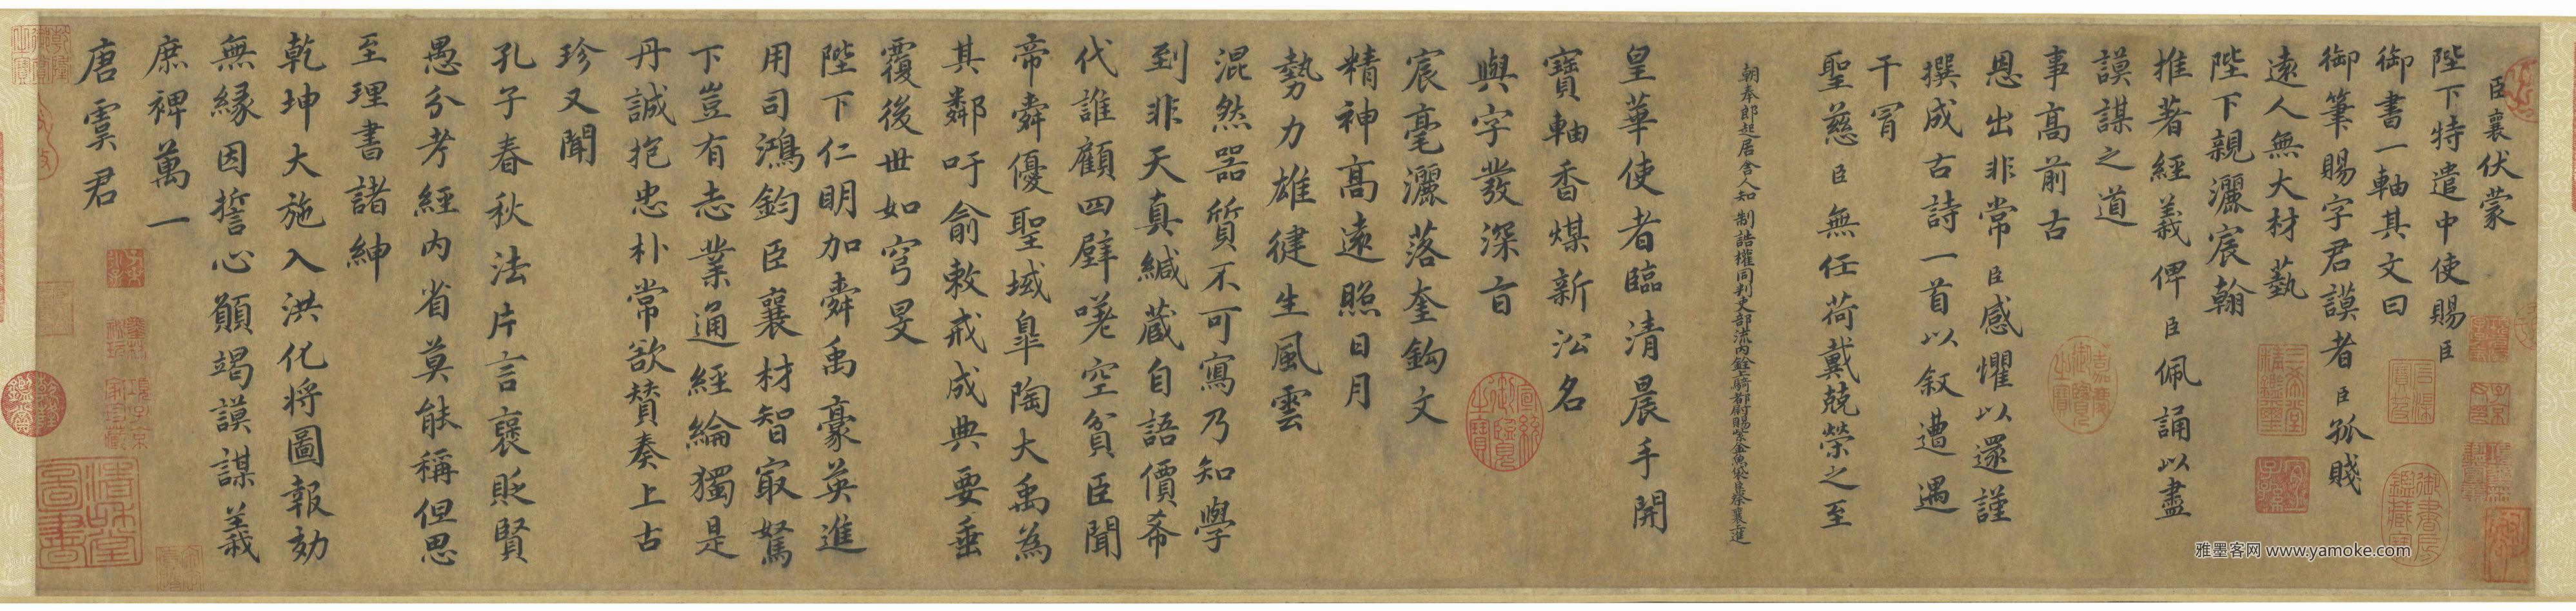 臣襄伏蒙
陛下特遣中使賜臣
御書一軸其文曰
御筆賜字君謨者臣孤賤
遠人無大材藝
陛下親灑宸翰
推著經義俾臣佩誦以盡
謨謀之道
事高前古
恩出非常臣感懼以還謹
撰成古詩一首以叙遭遇
干冒
聖慈臣無任荷戴兢榮之至
朝奉郎起居舍人知制誥權同判吏部流內銓上騎都尉賜紫金魚袋臣蔡襄上進
皇華使者臨清晨手開
寶軸香煤新沿名
與字發深㫖
宸毫灑落奎鈎文
精神高遠照日月
勢力雄健生風雲
混然器質不可寫乃知學
到非天真緘藏自語價希
代誰顧四壁嗟空貧臣聞
帝舜優聖域皐陶大禹為
其鄰吁俞敕戒成典要垂
覆後世如穹旻
陛下仁明加舜禹豪英進
用司鴻鈞臣襄材智㝡駑
下豈有志業通經綸獨是
丹誠抱忠朴常欲贊奏上古
珍又聞
孔子春秋法片言褒貶賢
愚分考經內省莫能稱但思
至理書諸紳
乾坤大施入洪化將圖報効
無緣因誓心願竭謨謀義
庶裨萬一
唐虞君
乾隆御覽之寶
嘉慶御覽之寶
宣統御覽之寶
三希堂精鑑璽
宜子孫
石渠寶笈
御書房鑑藏寶
乾隆鑑賞
雅墨客网 www.yamoke.com